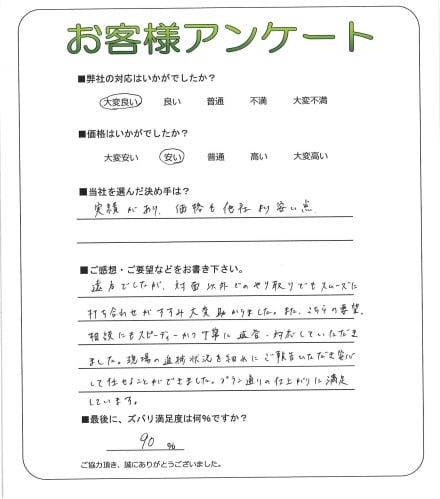 お客様アンケート
■弊社の対応はいかがでしたか?
大変良い 良い 普通 不満 大変不満
■価格はいかがでしたか?
大変安い 安い 普通 高い 大変高い
■当社を選んだ決め手は?
実績があり、価格も他社より安い点
■ご感想・ご要望などをお書き下さい。
遠方でしたが、対面以外でのやり取りでもスムーズに
打ち合わせがすすみ大変助かりました。また、こちらの要望、
相談にもスピーディーかつ丁寧に返答・対応していただき
ました。現場の進捗状況を細かにご報告いただき安心
して任せることができました。プラン通りの仕上がりに満足
しています。
■最後に、ズバリ満足度は何%ですか?
90 %
ご協力頂き、誠にありがとうございました。